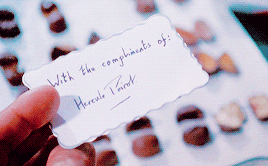 With the compliments of:
Hercule Poirot